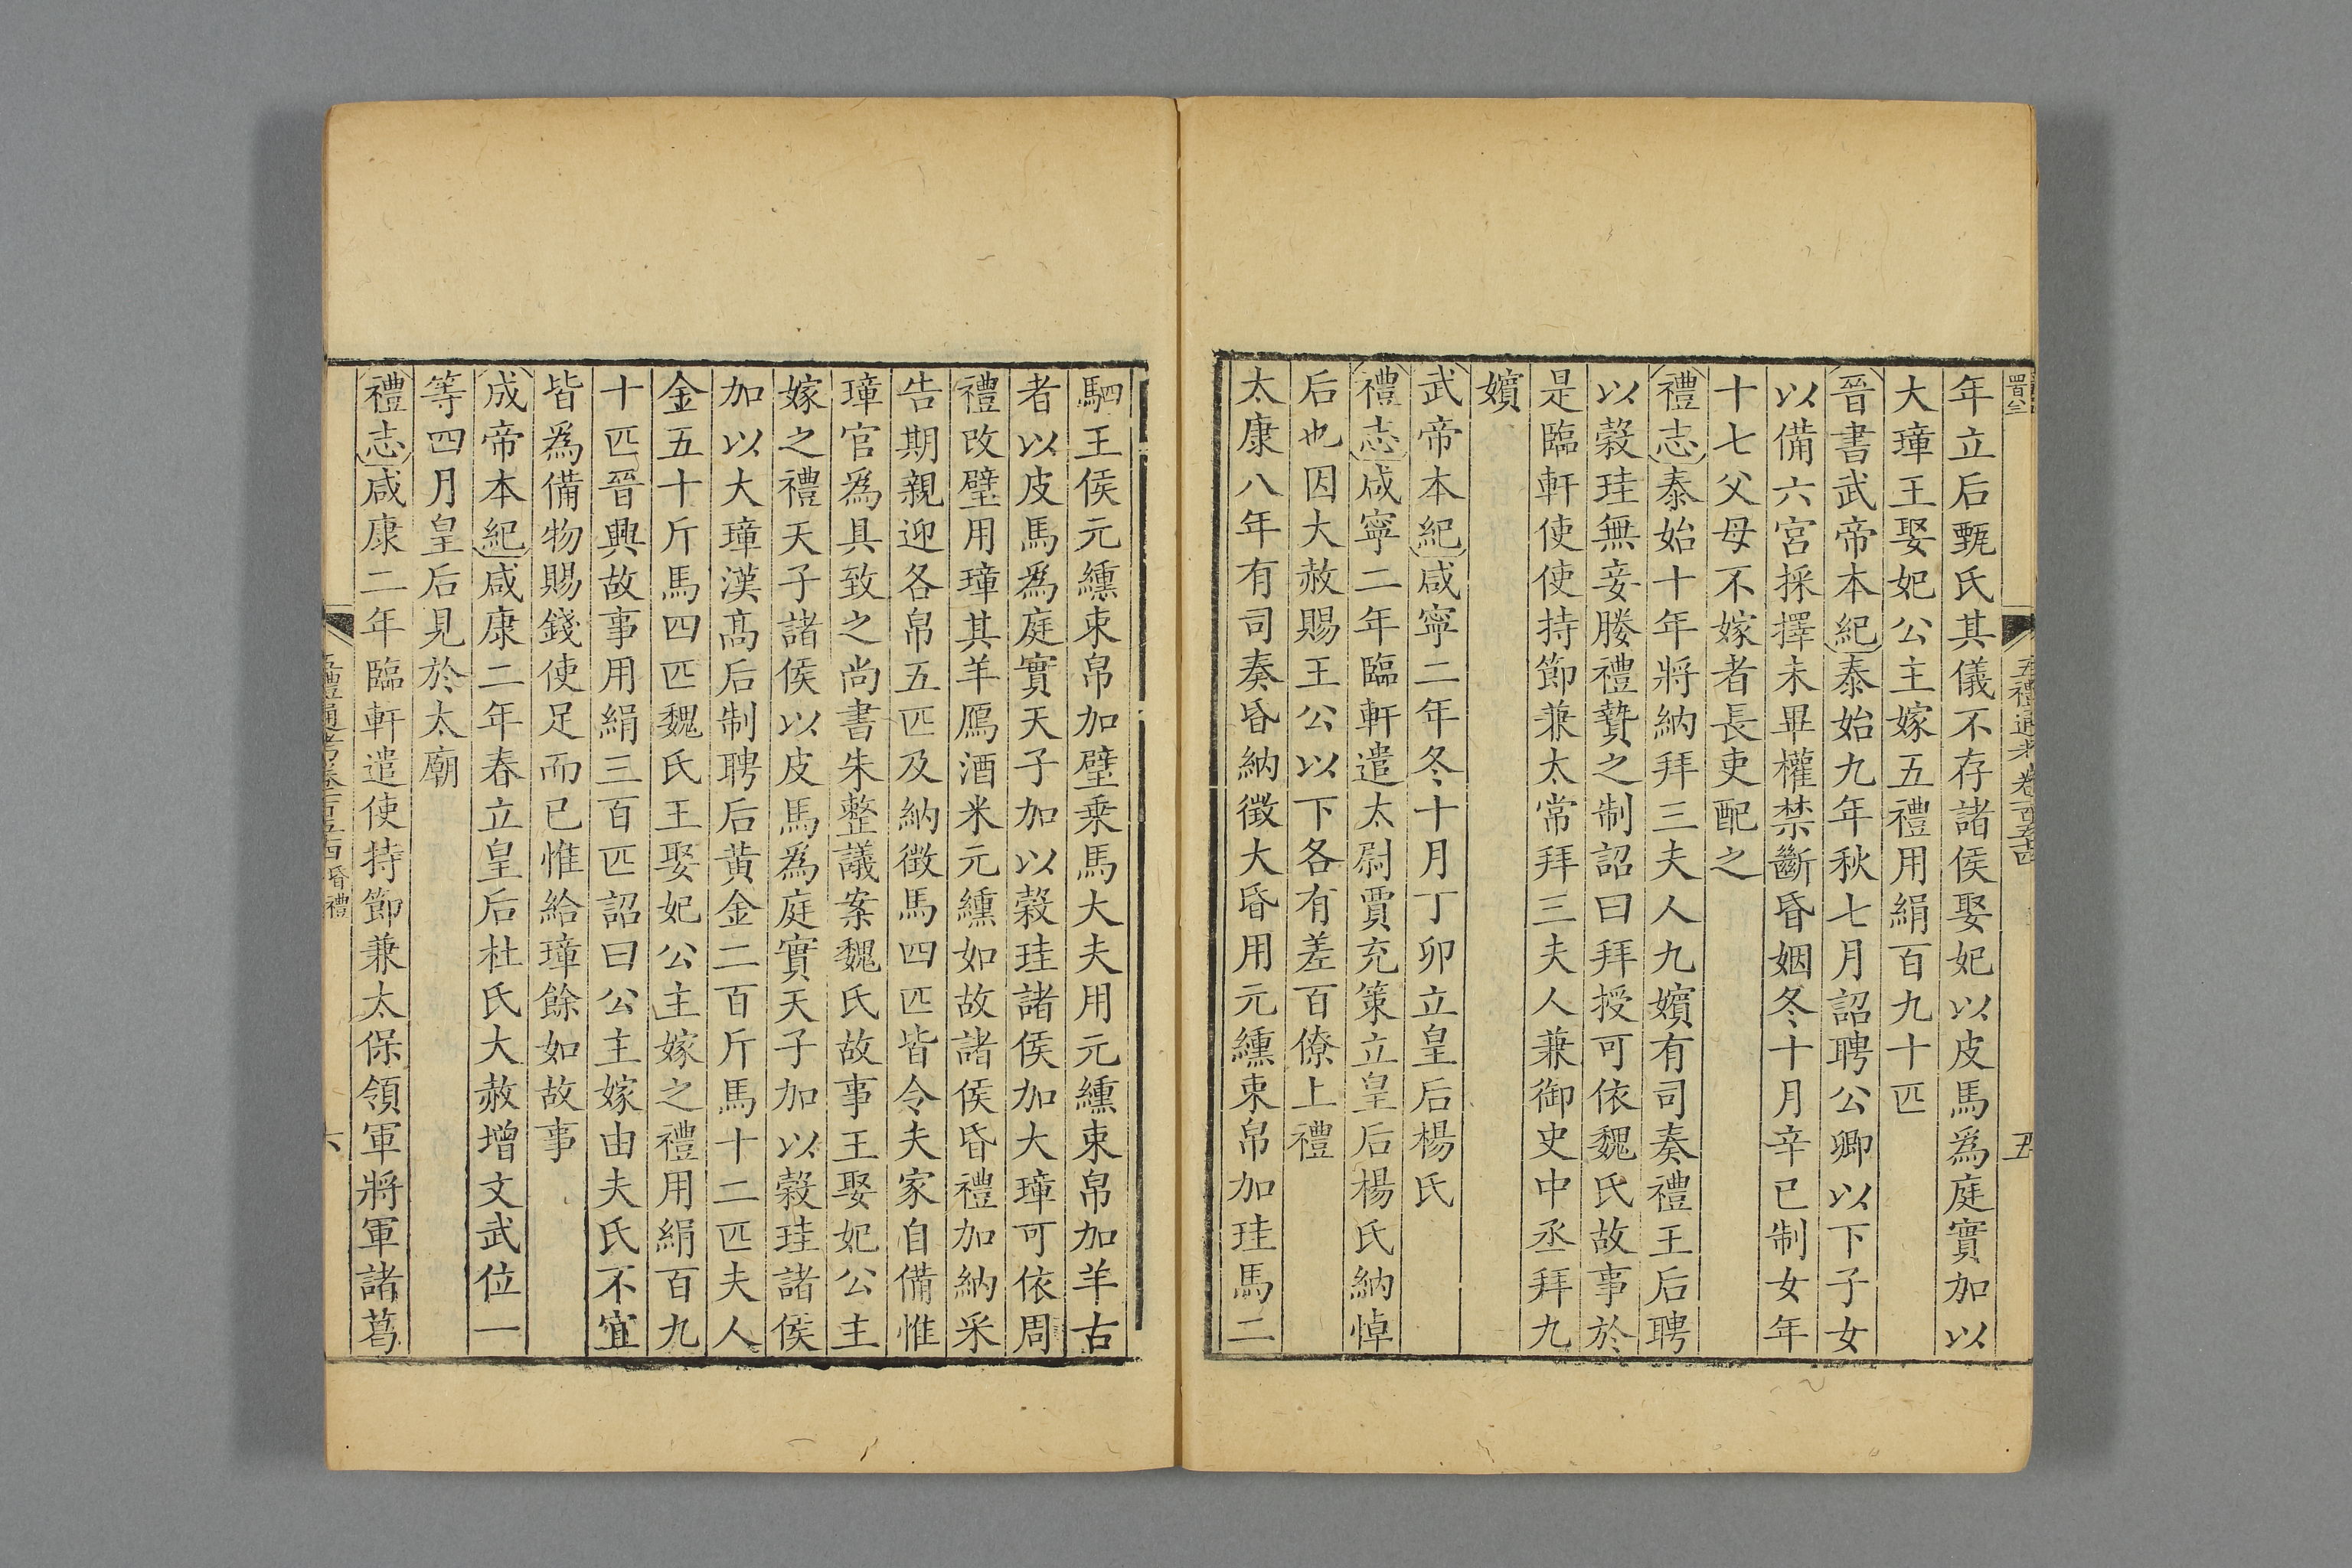 五禮通考 卷一百五十四
五
年立后甄氏其儀不存諸侯娶妃以皮馬爲庭實加以
大璋王娶妃公主嫁五禮用絹百九十匹
晉書武帝本紀泰始九年秋七月詔聘公卿以下子女
以備六宮採擇未畢權禁斷昏姻冬十月辛巳制女年
十七父母不嫁者長吏配之
禮志泰始十年將納拜三夫人九嬪有司奏禮王后聘
以榖珪無妾媵禮贄之制詔曰拜授可依魏氏故事於
是臨軒使使持節兼太常拜三夫人兼御史中丞拜九
嬪
武帝本紀咸寧二年冬十月丁卯立皇后楊氏
禮志咸寧二年臨軒遣太尉賈充策立皇后楊氏納悼
后也因大赦賜王公以下各有差百僚上禮
太康八年有司奏昏納徵大昏用元纁束帛加珪馬二
駟王侯元纁束帛加璧乗馬大夫用元纁束帛加羊古
者以皮馬爲庭實天子加以榖珪諸侯加大璋可依周
禮改璧用璋其羊鴈酒米元纁如故諸侯昏禮加納采
告期親迎各帛五匹及納徵馬四匹皆令夫家自備惟
璋官爲具致之尚書朱整議案魏氏故事王娶妃公主
嫁之禮天子諸侯以皮馬爲庭實天子加以榖珪諸侯
加以大璋漢髙后制聘后黄金二百斤馬十二匹夫人
金五十斤馬四匹魏氏王娶妃公主嫁之禮用絹百九
十匹晉興故事用絹三百匹詔曰公主嫁由夫氏不宜
皆爲備物賜錢使足而已惟給璋餘如故事
成帝本紀咸康二年春立皇后杜氏大赦增文武位一
等四月皇后見於太廟
禮志咸康二年臨軒遣使持節兼太保領軍將軍諸葛
五禮通考卷一百五十四 昏禮
六